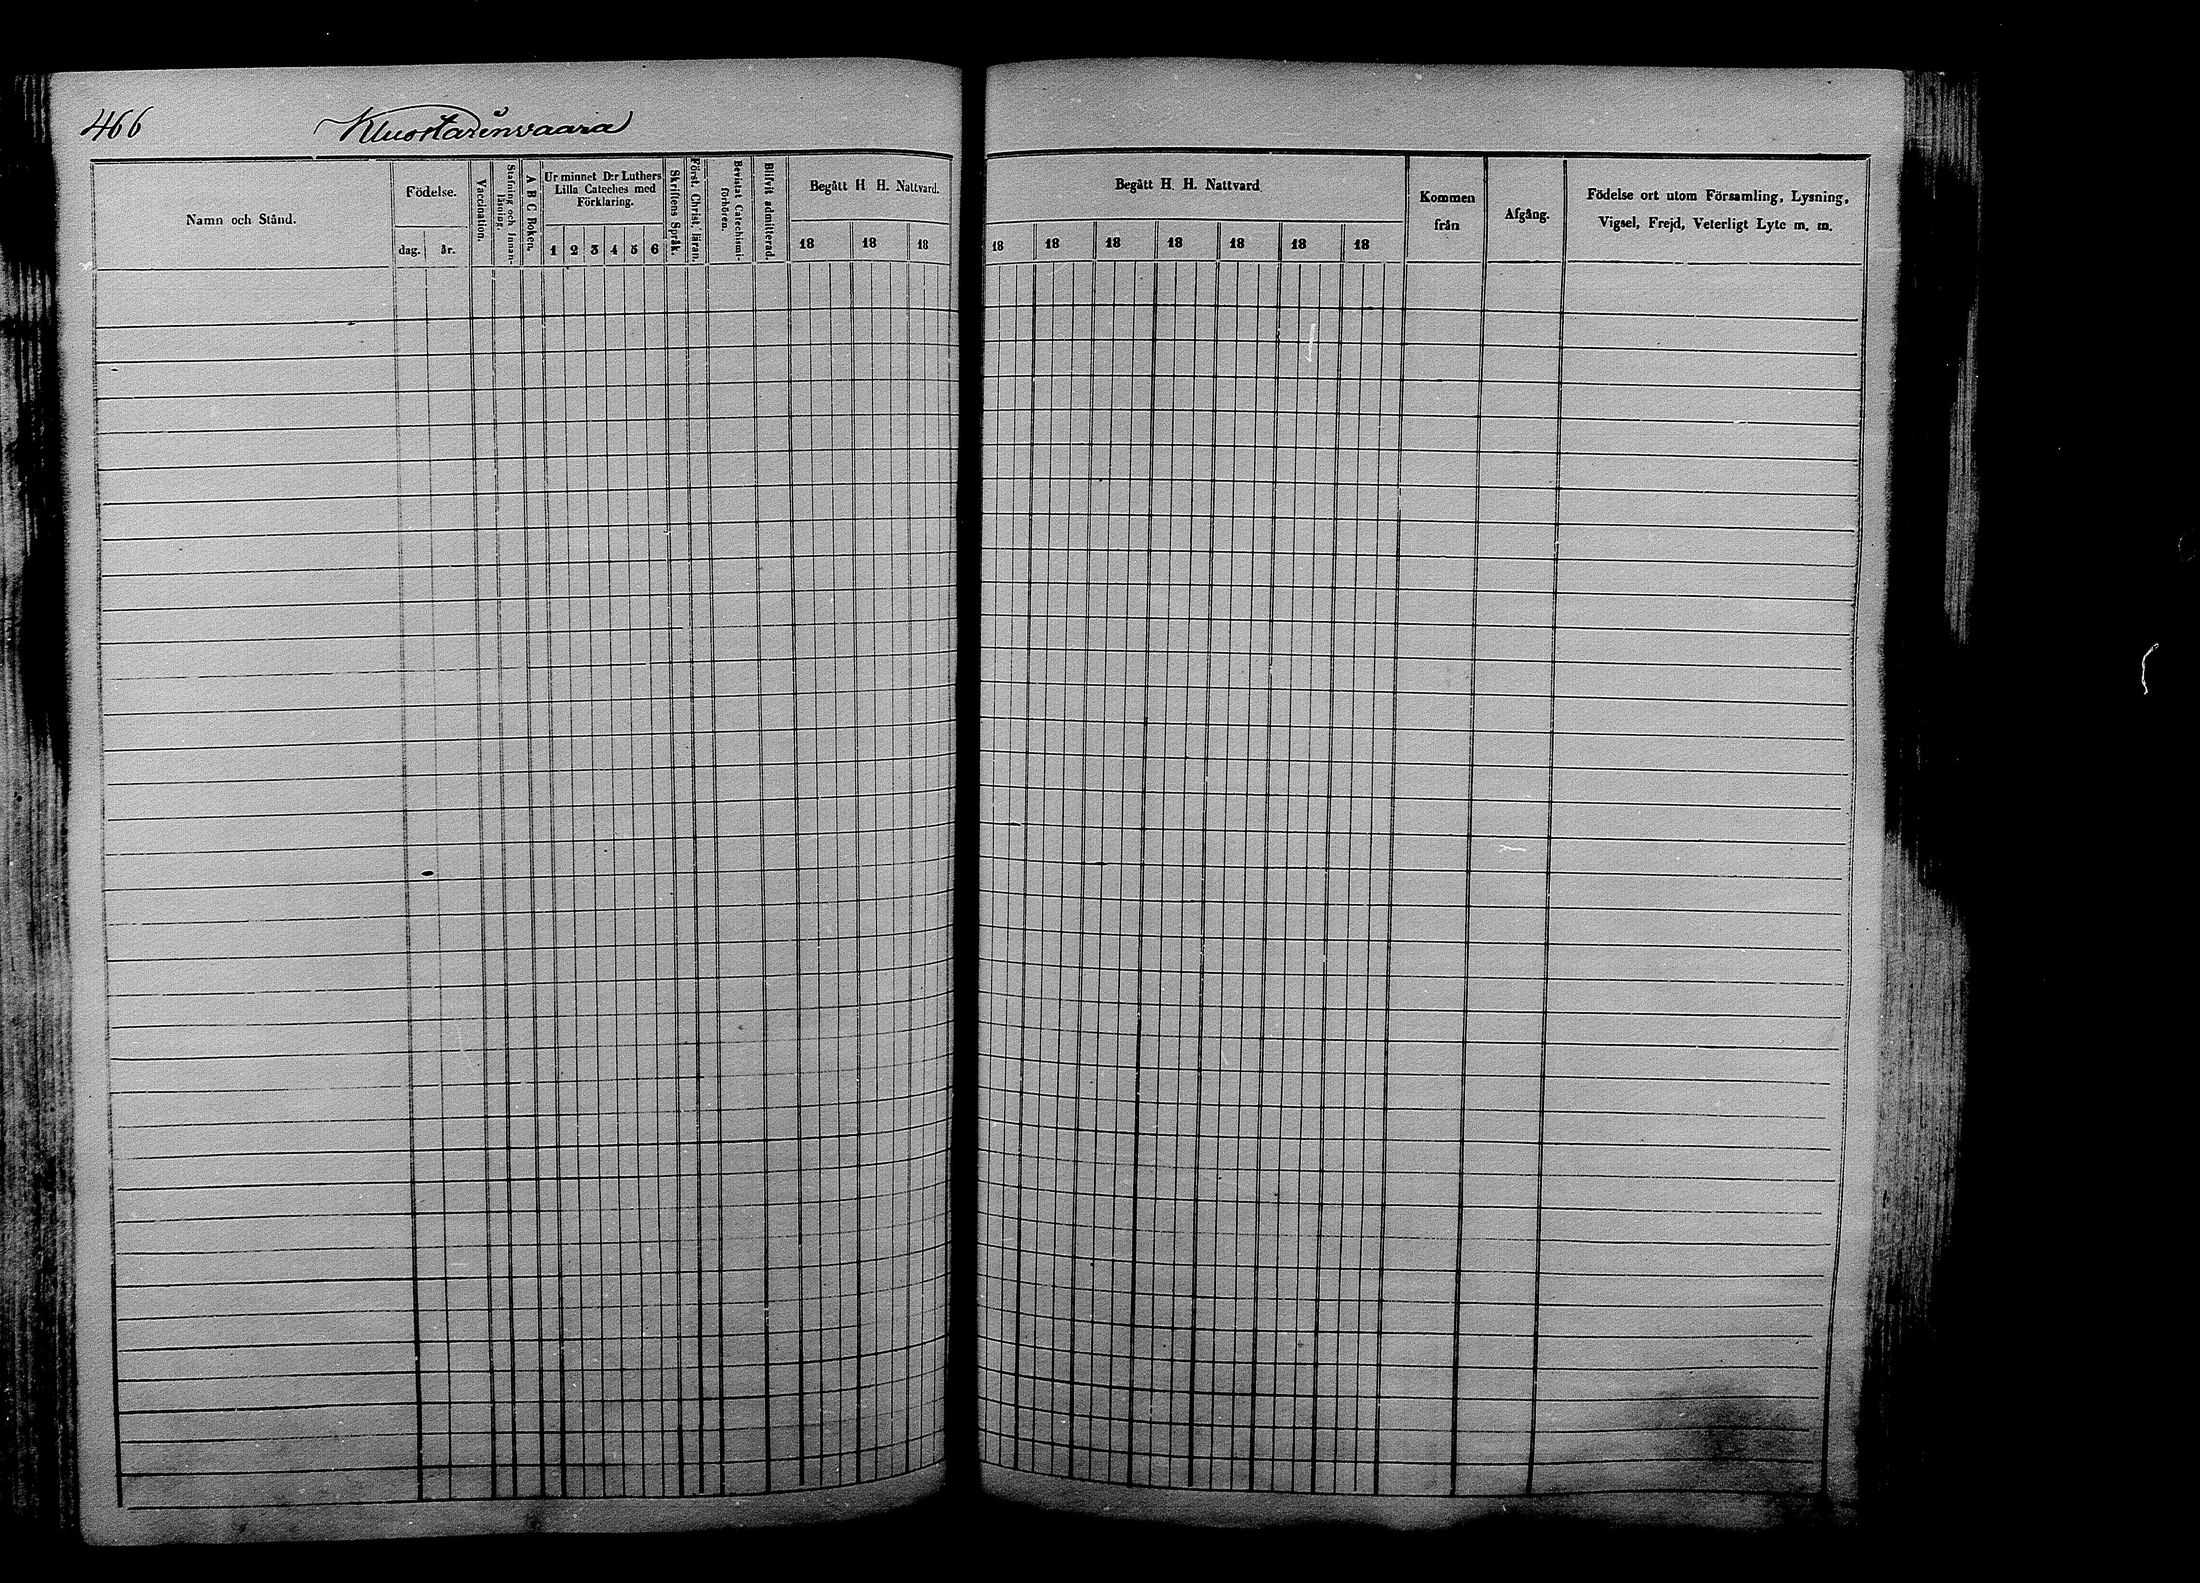 466
Kluostarinvaara
Namn och Stånd.
Födelse.
dag.
år.
Vaccination.
Stafning och Innan-
läsning.
A B C Boken.
Ur minnet D:r Luthers
Lilla Cateches med
Förklaring.
1 2 3 4 5 6
Skriftens Språk.
Först. Christ. läran.
Bevistat Catechismi-
förhören.
Blifvit admitterad.
Begått H H. Nattvard.
18 18 18
Begått H. H. Nattvard
18 18 18 18 18 18 18
Kommen
från
Afgång.
Födelse ort utom Församling, Lysning,
Vigsel, Frejd, Veterligt Lyte m. m.